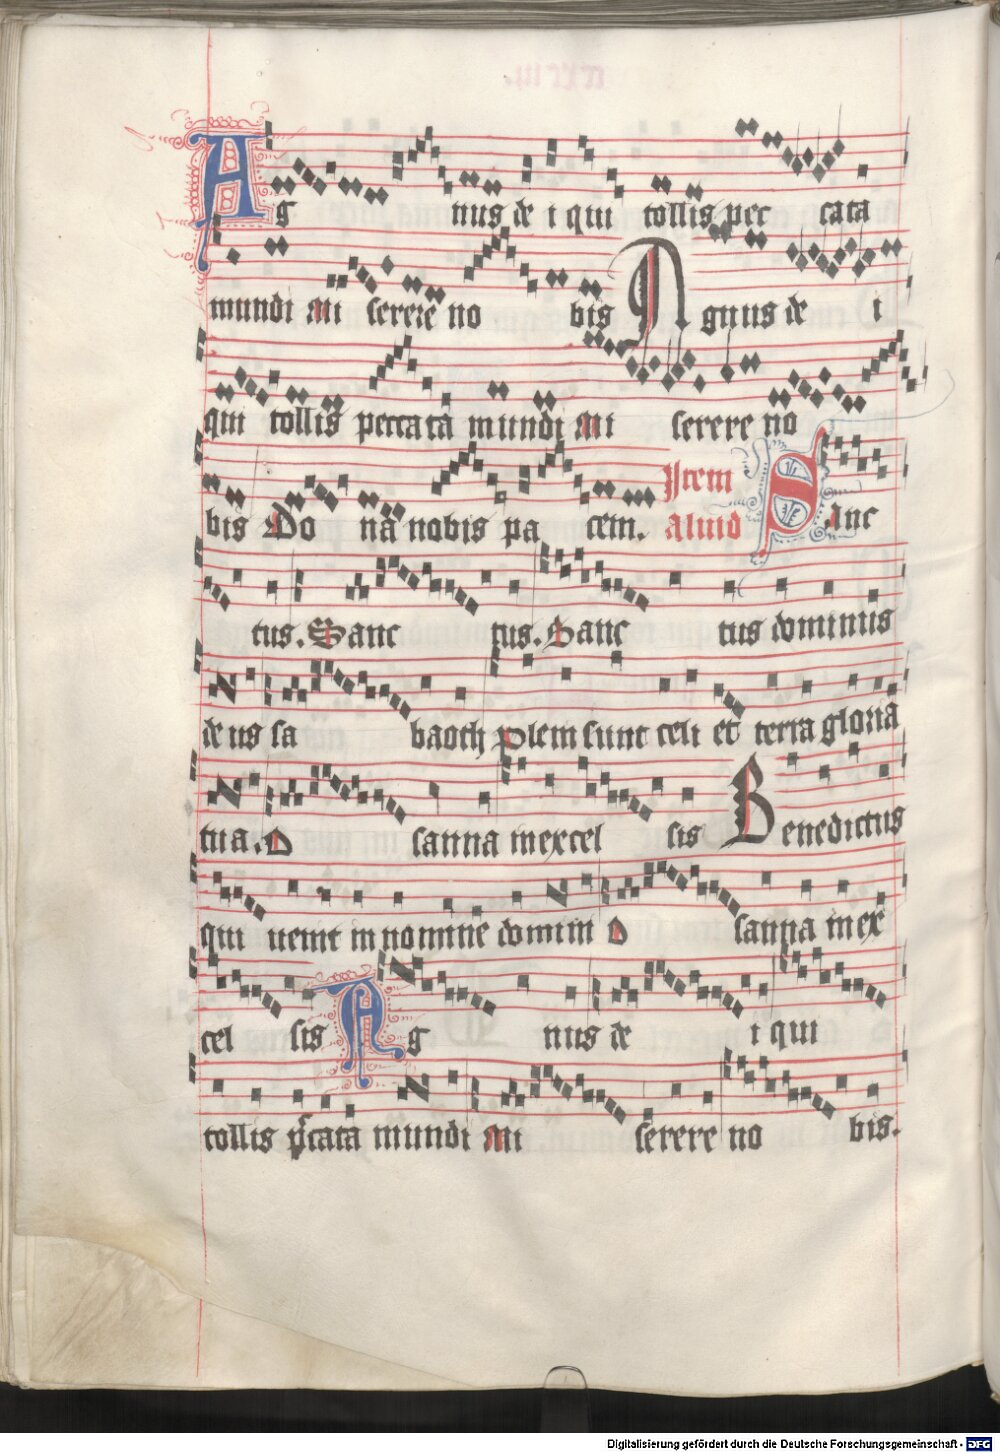 Ag nus de i qui tollis pec cata
mundi mi serere no bis Agnus de i
qui tollis peccata mundi mi serere no
bis Do na nobis pa cem. Item
aliud Sanc
tus. Sanc tus. Sanc tus dominus
deus sa baoth Plem sunt celi et terra gloria
tua. O sanna in excel sis Benedictus
qui uenit in nomine domini O sanna in ex
cel sis Ag nus de i qui
tollis pccata mundi mi serere no bis.
Digitalisierung gefördert durch die Deutsche Forschungsgemeinschaft - DFG